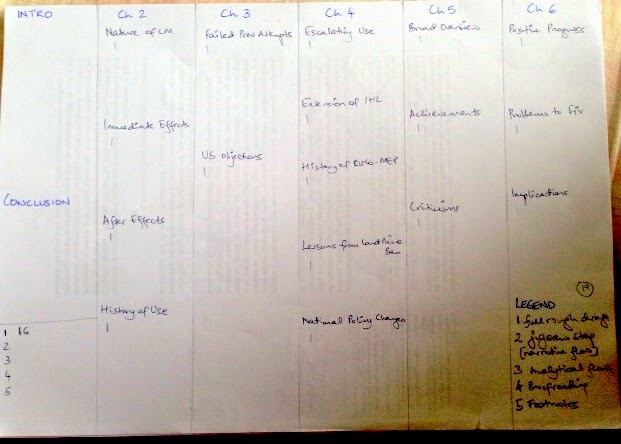 INTRO
CONCLUSION
1 16
2
3
4
5
Ch 2
Nature of CM
|
Immediate Effects
|
After Effects
|
History of Use
|
Ch 3
Failed Prev Attempts
|
US Objections
|
Ch 4
Escalating Use
|
Extension of IHL
|
History of Oslo-MEP
|
Lessons from Land Mine
Ban
|
National Policy Changes
|
Ch 5
Broad Overview
|
Achievements
|
Criticisms
|
Ch 6
Positive Progress
|
Problems to Fix
|
Implications
|
19
LEGEND
1 full rough draft
2 jigsaw step
(narrative flow)
3 Analytical flow
4 Proofreading
5 Footnotes